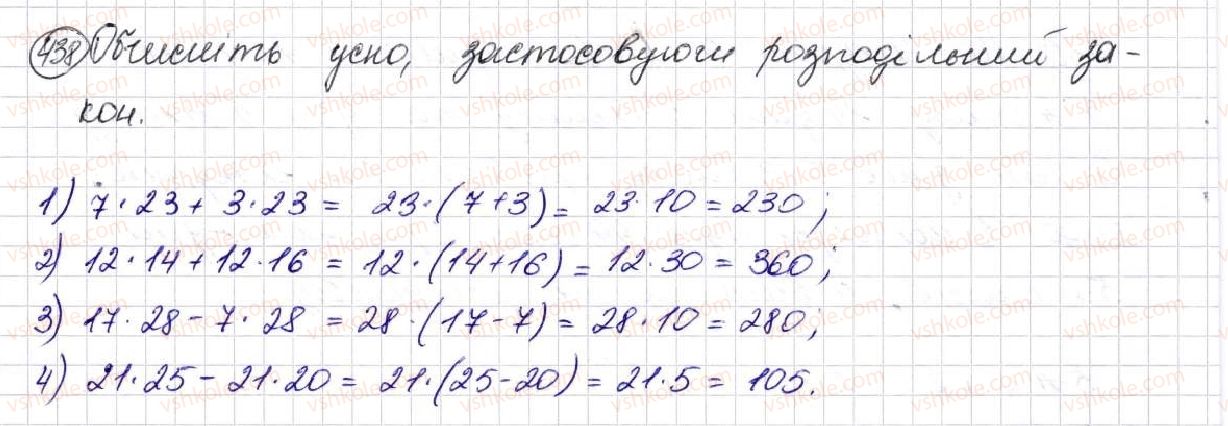 438 Обчисліть усно, застосовуючи розподільний за-
кон.
1) 7·23+ 3·23 = 23·(7+3) = 23·10 = 230;
2) 12·14+12·16 = 12·(14+16) = 12·30 = 360;
3) 17·28-7·28 = 28·(17-7) = 28·10 = 280;
4) 21·25-21·20 = 21·(25-20) = 21·5 = 105.